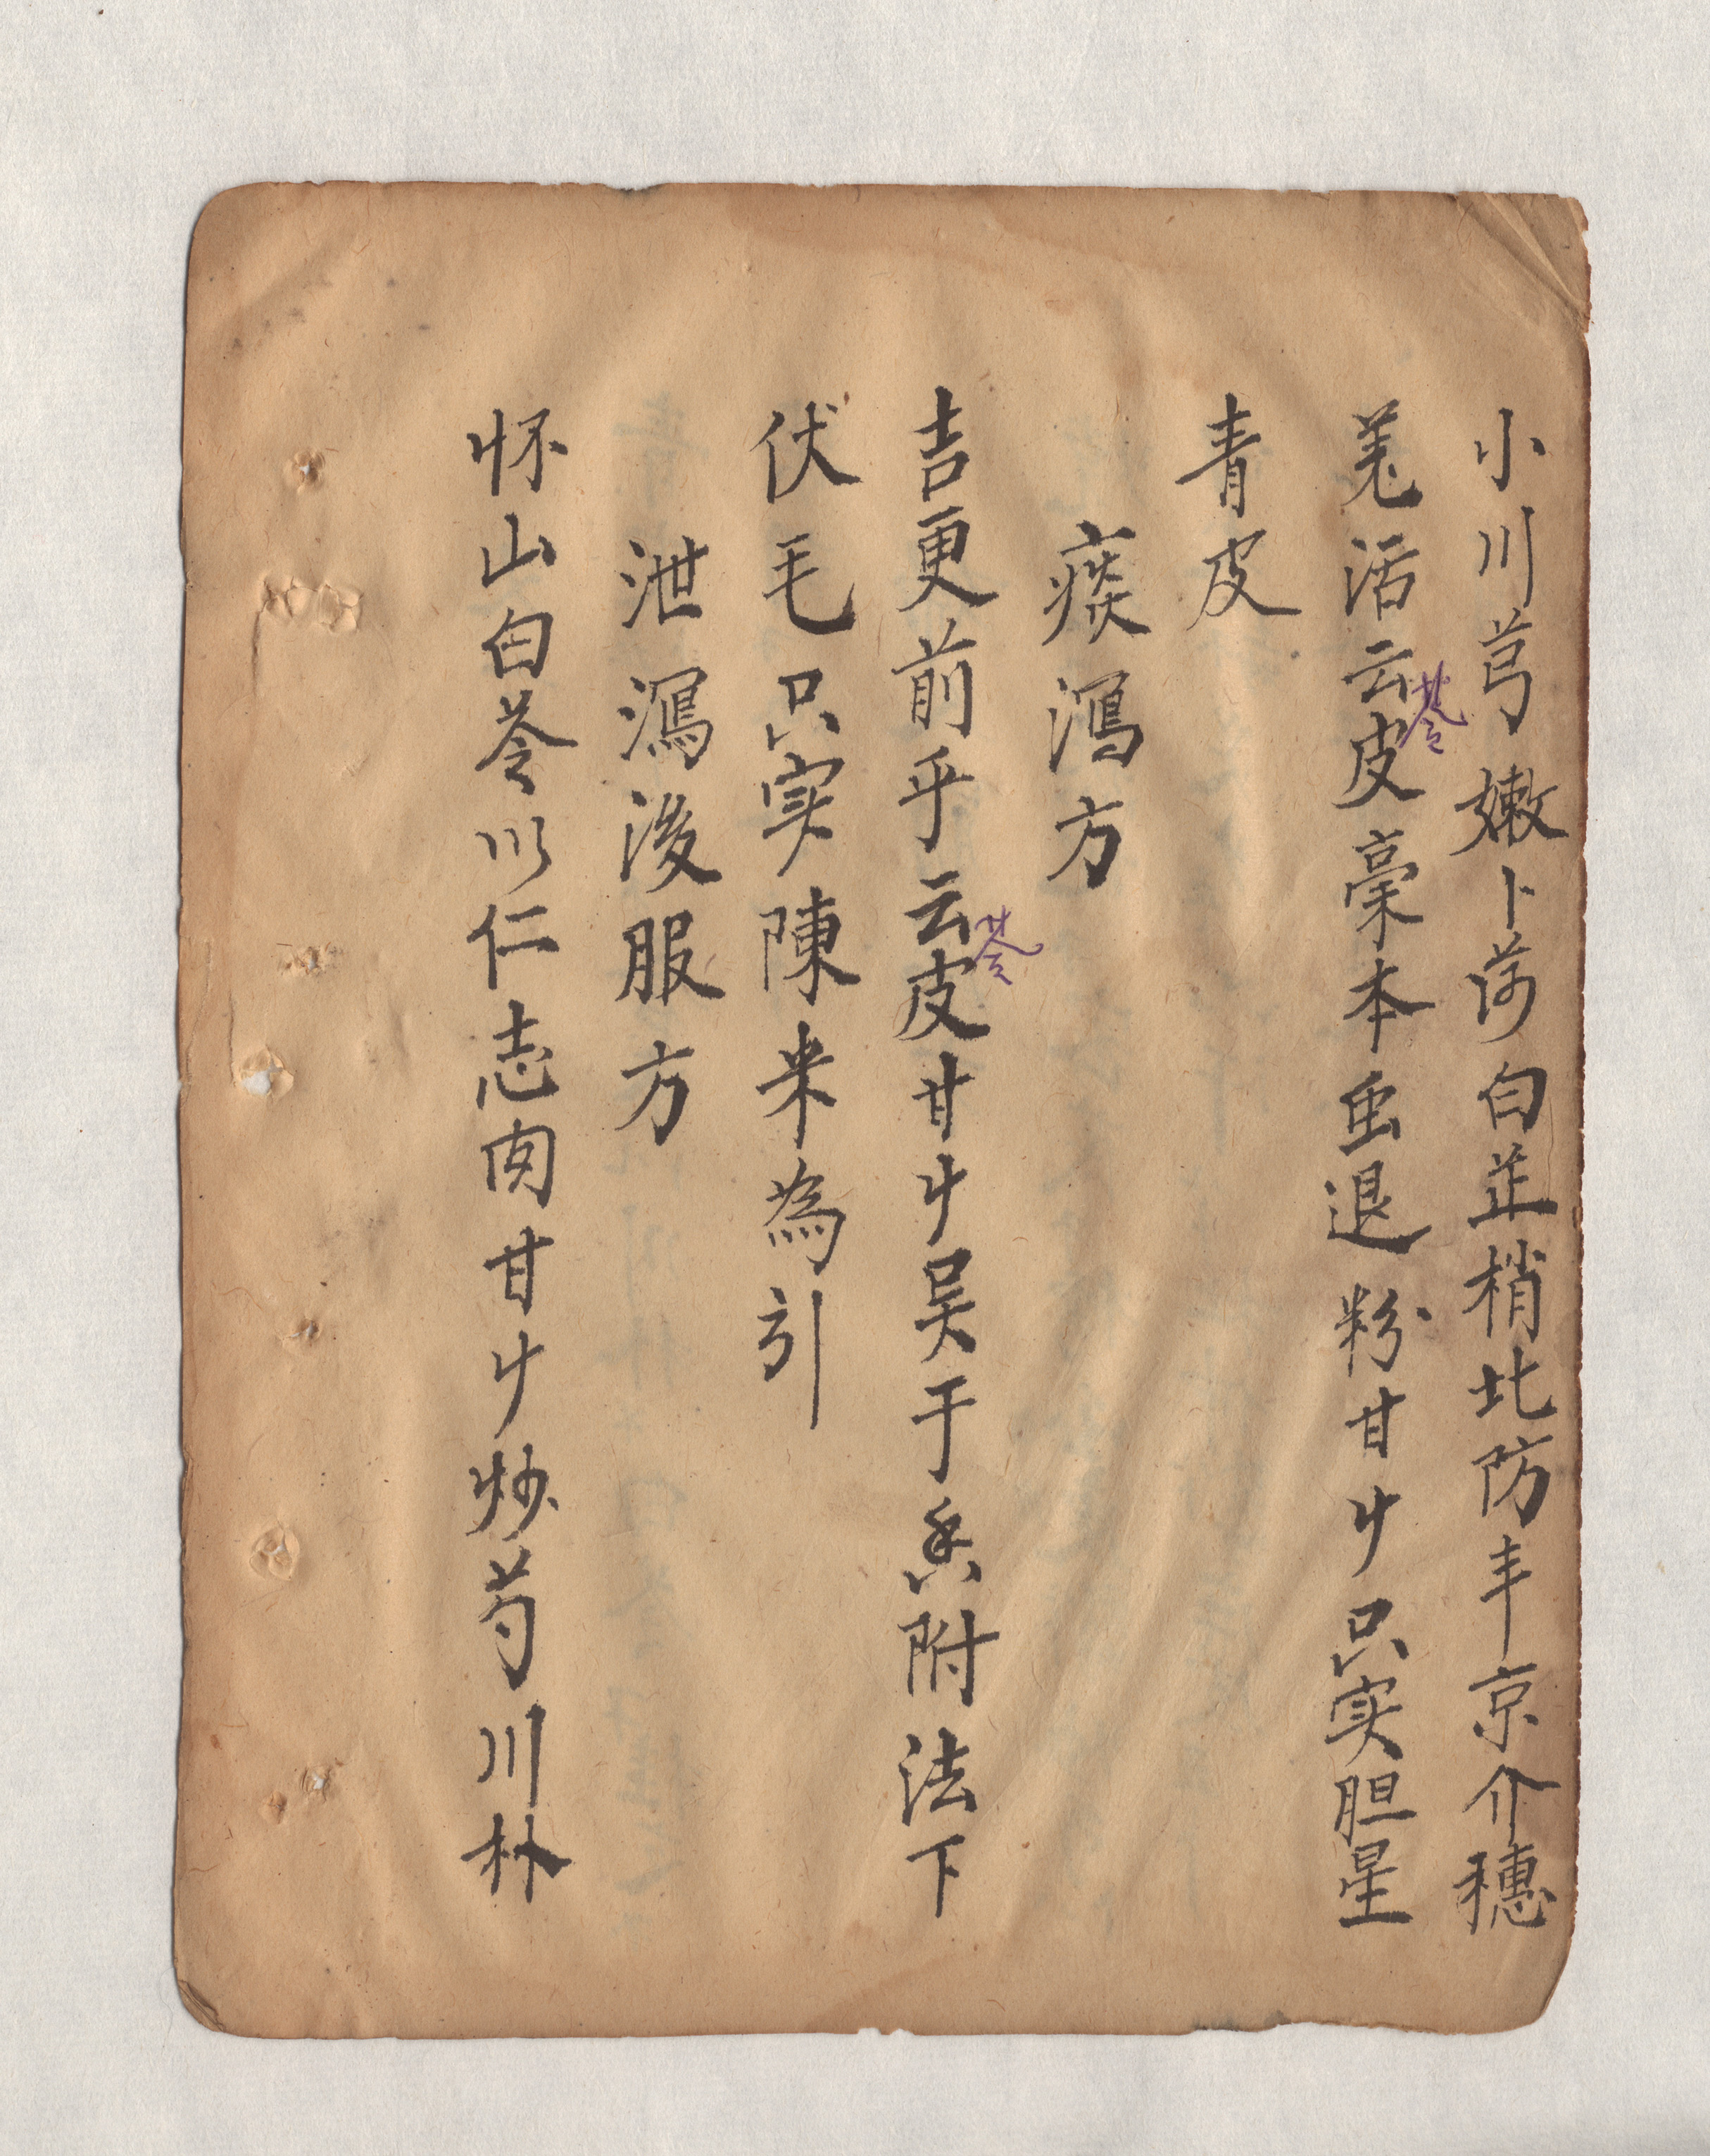 小川芎嫩卜荷白芷梢北防丰京介穗
羌活云苓皮藁本虫退粉甘廾只实胆星
青皮
痰瀉方
吉更前乎云苓皮甘廾吴于香附法下
伏毛只实陳米為引
泄瀉後服方
怀山白苓以仁志肉甘廾炒芍川朴